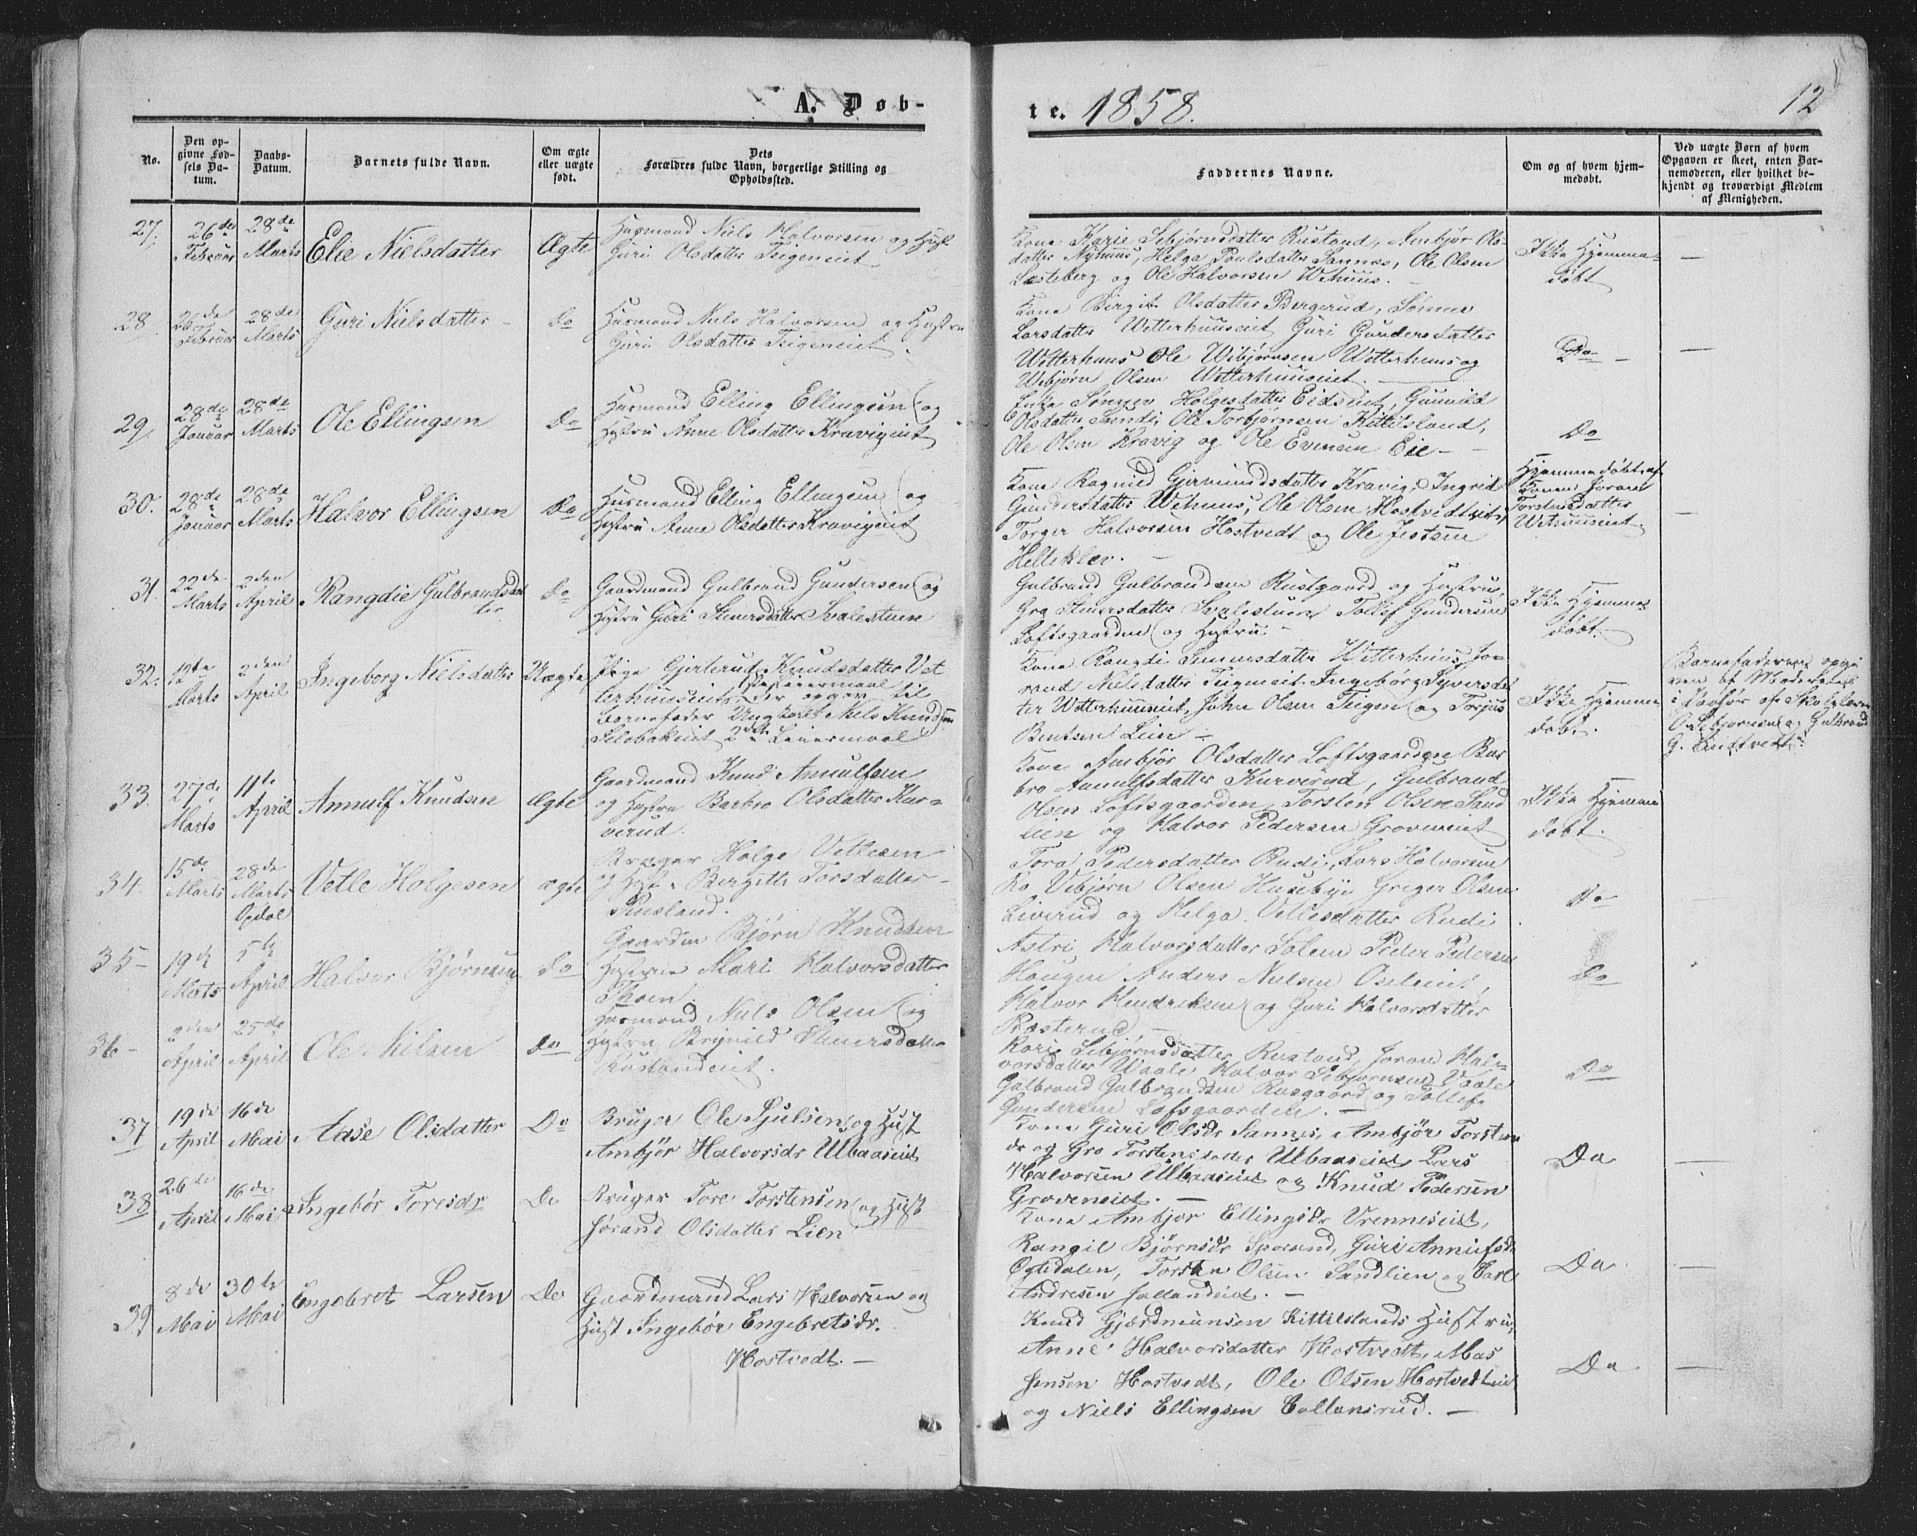 A. Døb-
te. 1858.
12
No.
Den op-
givne Fød-
sels Da-
tum.
Daabs-
Datum.
Barnets fulde Navn.
Om ægte
eller uægte
født.
Dets
Forældres fulde Navn, borgerlige Stilling og
Opholdssted.
Faddernes Navne.
Om og af hvem hjem-
medøbt.
Ved uægte Børn af hvem
Opgaven er skeet, enten Bar-
nemoderen, eller hvilket be-
kjendt og troværdigt Medlem
af Menigheden.
27.
26de
Februar
28de
Marts
Elie Nielsdatter
Ægte
Husmand Niels Halvorsen og Hust
Guri Olsdatter Teigeneiet
Kone Karie Sebjørnsdatter Rustand, Ambjør Ols-
datter Nymuus, Helga Poulsdatter Sannes, Ole Olsen
Lasteberg og Ole Halvorsen Wehuus.
Ikke Hjemme-
døbt
28.
26de
Februar
28de
Marts
Guri Nielsdatter
Do
Husmand Niels Halvorsen og Hustru
Guri Olsdatter Teigeneiet.
Kone Birgit Olsdatter Bergerud, Sønnev
Larsdatter Wetterhuuseiet Guri Gundersdatter
Wetterhuus Ole Wibjørnsen Wetterhuus og
Webjørn Olsen Wetterhuuseiet.
Do
29.
28de
Januar
28de
Marts
Ole Ellingsen
Do
Husmand Elling Ellingsen og
Hustru Anne Olsdatter Kravigeiet
Enke Sønnev Holgesdatter Eidseiet, Gunnild
Olsdatter Sandi, Ole Torbjørnsen Kittilsland,
Ole Olsen Kravig og Ole Evensen Eie
Do
30.
28de
Januar
28de
Marts
Halvor Ellingsen
Do
Husmand Elling Ellingsen og
Hustru Anne Olsdatter Kravigeiet
Kone Ragnild Gjermundsdatter Kravig, Ingrid
Gundersdatter Wehuus, Ole Olsen Hostvedteiet,
Torger Halvorsen Hostvedt og Ole Jestsen
Helleklev.
Hjemmedøbt af
Konen Joran
Torstensdatter
Wehuuseiet
31.
22de
Marts
2den
April
Rangdie Gulbrandsdat
ter
Do
Gaardmand Gulbrand Gundersen og
Hustru Guri Stenersdatter Svalestuen
Gulbrand Gulbrandsen Rustgaard og Hustru,
Gro Stenersdatter Svalestuen Tollef Gundersen
Loftsgaarden og Hustru
Ikke Hjemme-
døbt.
32.
12te
Marts
2den
April
Ingeborg Nielsdatter
Uægte
Pige Gjertrud Knudsdatter Vet
terhuuseiet,
der opgav til
Barnefader Ungkarl Niels Knudsen
2det Leiermaal
Kone Rangdi Gunnersdatter Wetterhuus, Jo-
rand Nielsdatter Teigeneiet. Ingeborg Syversdat
ter Wetterhuuseiet, John Olsen Teigen og Torjus
Bentsen Lien
Ikke Hjemme
døbt.
Barnefaderen opgi
ven af Moderen
i Paahør af Skolelærer
O. Sebjørnsen og Gulbrand
33.
27de
Marts
11te
April
Annulf Knudsen
Ægte
Gaardmand Knud Annulfsen
og Hustru Barbro Olsdatter Kar-
verud.
Kone Ambjør Olsdatter Loftsgaarden Bar
bro Annulfsdatter Karverud, Gulbrand
Olsen Loftsgaarden, Torsten Olsen Sand
lien og Halvor Pedersen Groveneiet
Ikke Hjemme
døbt.
34.
15de
Marts
28de
Marts
Opdal
Vetle Holgesen
ægte
Bruger Holge Vetlesen
og Hust. Bergith Torsdatter
Rusland.
Tora Pedersdatter Rudi, Lars Halvorsen
Ro Vebjørn Olsen Husebye Greger Olsen
Liverud og Helga Vetlesdatter Rudi
Do
35
19de
Marts
5te
April
Halvor Bjørnsen
do
Gaardm Bjørn Knudsen
Hustrue Mari Halvorsdatter
Thoen
Astri Halvorsdatter Solem Peder Pedersen
Haugen Anders Nielsen Oseleiet,
Halvor Hendriksen og Guri Halvorsdatter
Røsterud
Do
36
2den
April
25de
April
Ole Nielsen
do
Husmand Niels Olsen og
Hustru Brynild Stenersdatter
Rustandeiet.
Kari Sebjørnsdatter Rustand, Joran Hal-
vorsdatter Vaale Halvor Sebjørnsen Vaale
Gulbrand Gulbrandsen Rusgaard og Tollef
Gundersen Lofsgaarden.
Do
37
19de
April
16de
Mai
Aase Olsdatter
Do
Bruger Ole Sjulsen og Hust
Ambjør Halvorsdr Ulbaaseiet
Kone Guri Olsdr Sannes, Ambjør Torstens
dr og Gro Torstensdatter Ulbaaseiet, Lars
Halvorsen Ulbaaseiet og Knud Pedersen
Groveneiet.
Do
38
26de
April
16de
Mai
Ingebør Toresdr
Do
Bruger Tore Torstensen og Hust
Jørand Olsdatter Lien
Kone Ambjør Ellingsdr Vrenneseiet,
Rangil Bjørnsdr Sporand, Guri Annulfsdr
Torsten Olsen Sandlien og Carl
Andresen
Do
39
8de
Mai
30te
Mai
Engebret Larsen
Do
Gaardmand Lars Halvorsen og
Hust Ingebør Engebretsdr.
Hostvedt.
Knud Gjærdmunsen Kittilslands Hustru,
Anne Halvorsdatter Hostvedt, Mas
Jensen Hostvedt, Ole Olsen Hostvedteiet
og Niels Ellingsen Collansrud.
Do